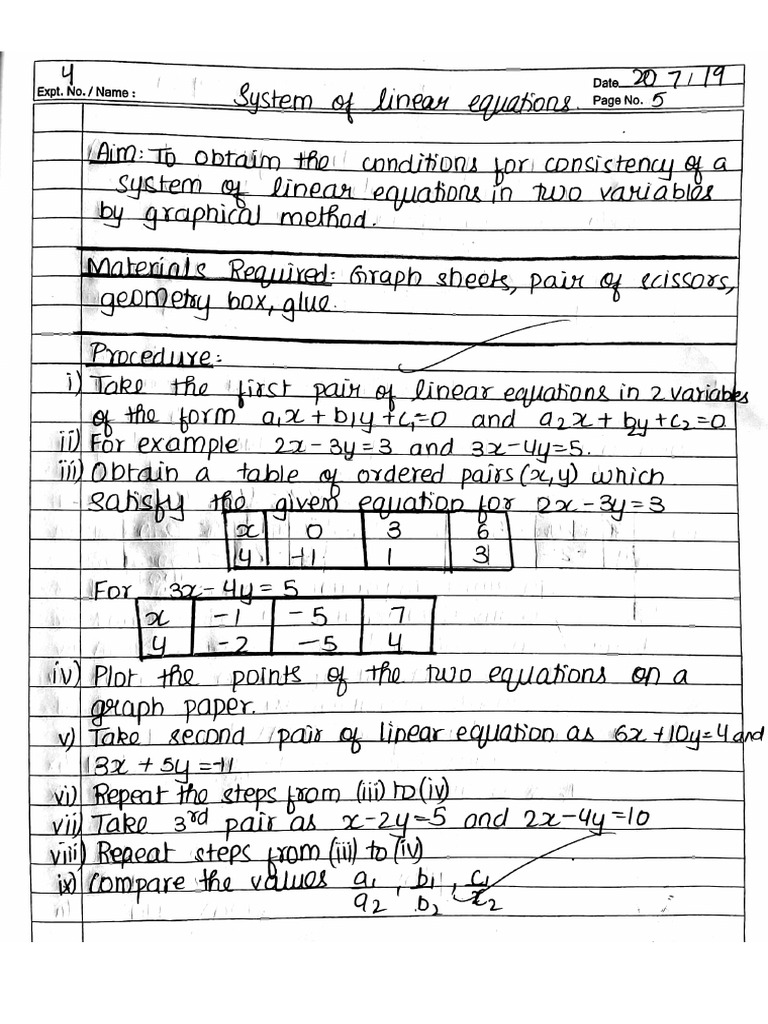 4
Expt. No. / Name :
System of linear equations.
Date 20/7/19
Page No. 5
Aim: To obtain the conditions for consistency of a
system of linear equations in two variables
by graphical method.
Materials Required: Graph sheets, pair of scissors,
geometry box, glue.
Procedure:
i) Take the first pair of linear equations in 2 variables
of the form a₁x + b₁y + c₁=0 and a₂x + b₂y + c₂=0
ii) For example 2x - 3y = 3 and 3x - 4y = 5.
iii) Obtain a table of ordered pairs (x, y) which
satisfy the given equation for 2x - 3y = 3
x 0 3 6
y -1 1 3
For 3x - 4y = 5
x -1 -5 7
y -2 -5 4
iv) Plot the points of the two equations on a
graph paper.
v) Take second pair of linear equation as 6x + 10y = 4 and
3x + 5y = -11
vi) Repeat the steps from (iii) to (iv)
vii) Take 3rd pair as x - 2y = 5 and 2x - 4y = 10
viii) Repeat steps from (iii) to (iv)
ix) Compare the values a₁/a₂, b₁/b₂, c₁/c₂